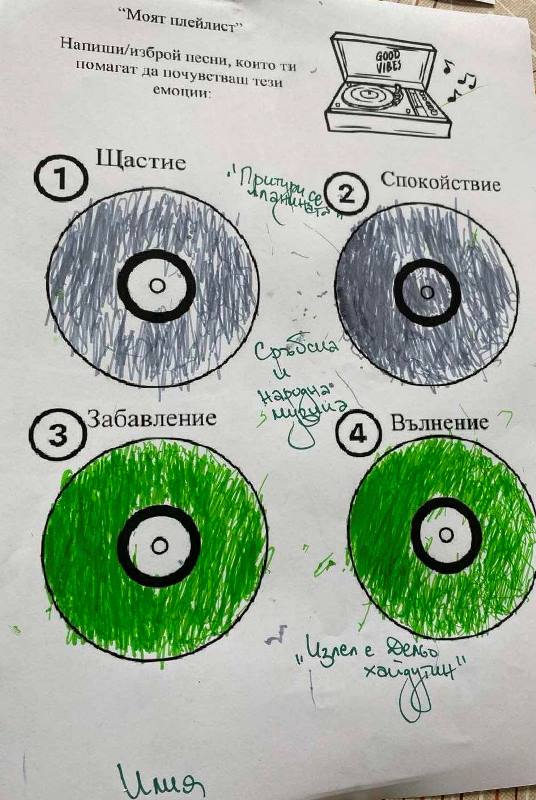 “Моят плейлист”
Напиши/изброй песни, които ти
помагат да почувстваш тези
емоции:
GOOD
VIBES
1 Щастие
"Притури се
планината"
2 Спокойствие
Сръбска
и
народна
музика
3 Забавление
4 Вълнение
"Излел е Дельо
хайдутин"
Илия